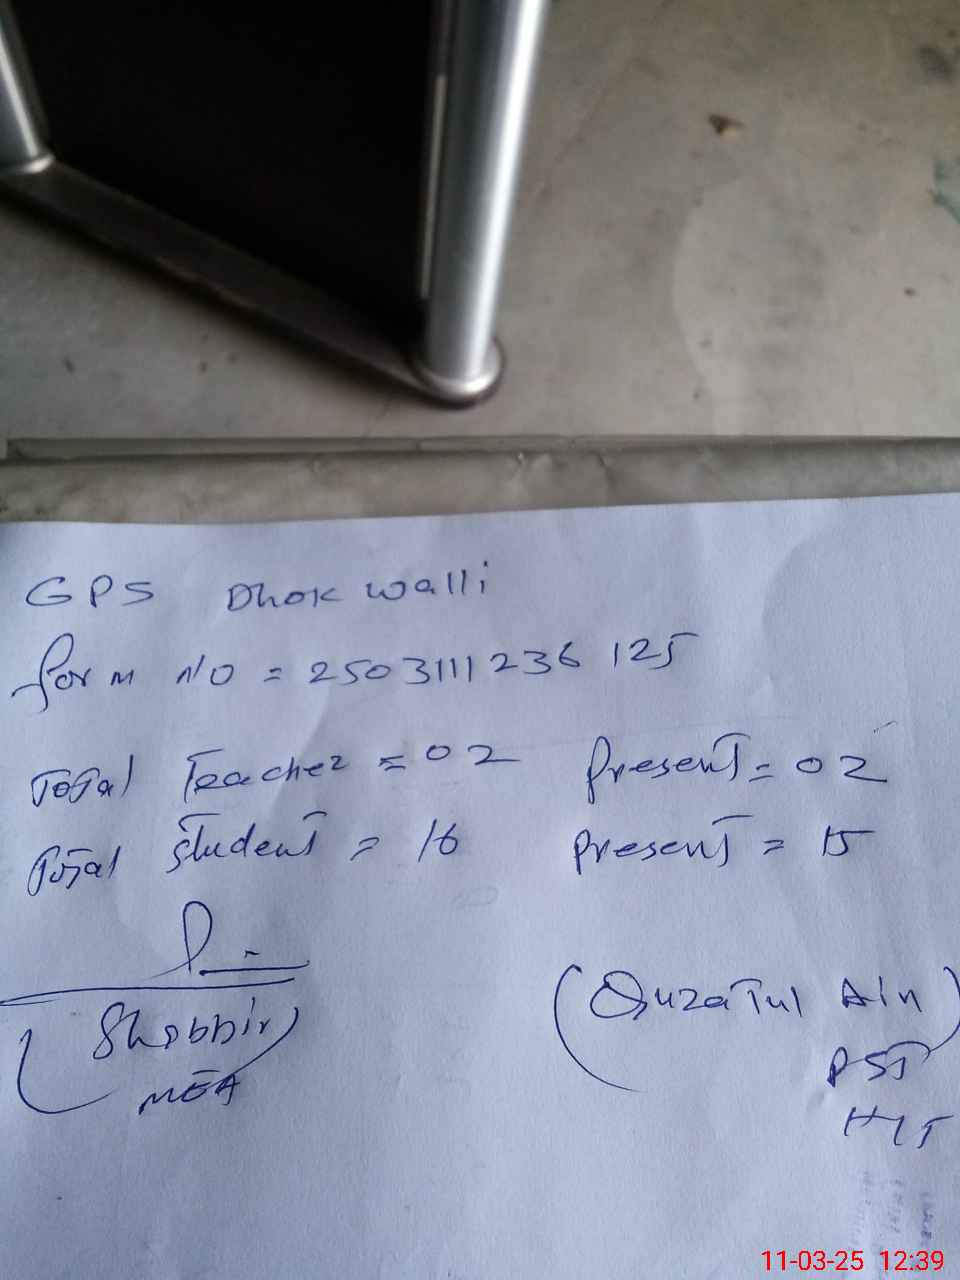 GPS Dhok walli
form NO = 2503111236125
Total Teacher = 02 Present = 02
Total Student = 16 Present = 15
(Shabbir)
MEA
(Quzatul Ain)
PST
H/T
11-03-25 12:39